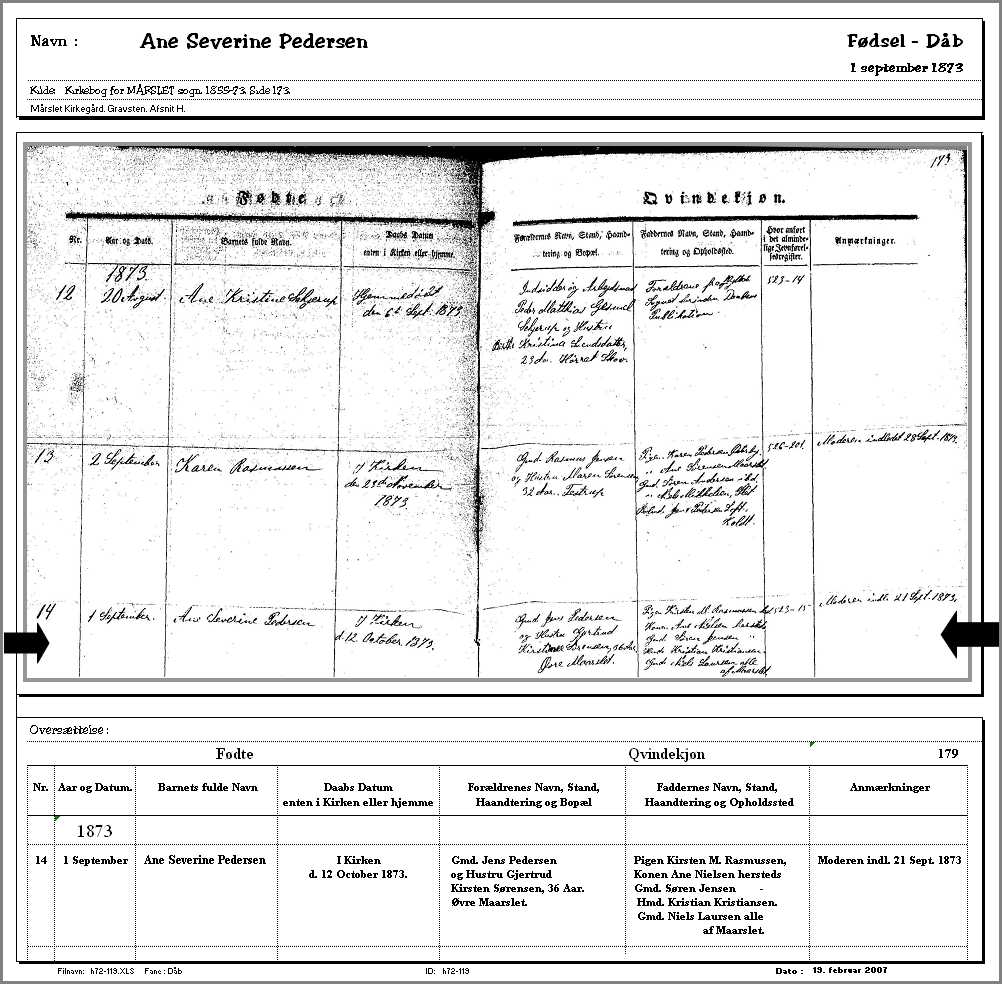 Navn : Ane Severine Pedersen Fødsel - Dåb
1 september 1873
Kilde: Kirkebog for MÅRSLET sogn. 1855-73. Side 173.
Mårslet Kirkegård. Gravsten. Afsnit H.
173
Fødte Qvindekjøn.
Nr. Aar og Dato. Barnets fulde Navn. Daabs Datum enten i Kirken eller hjemme. Forældrenes Navn, Stand, Haandtering og Bopæl. Faddernes Navn, Stand, Haandtering og Opholdssted. Hvor anført i det almindelige Jevnførelsesregister. Anmærkninger.
1873.
12 20 August Ane Kristine Hjemmedøbt
den 6te Sept. 1873
Indsidder og
Peder Matthias
og Hustru
Kristine
23 Aar. Hørret Skov.
Forældrene
Publikation.
523-14
13 2 September Karen Rasmussen I Kirken
den 23de November
1873.
Gmd Rasmus Jensen
og Hustru Maren Sørensen
32 Aar. Testrup
Pigen Karen Pedersen
" Ane Sørensen Maarslet
Gmd Søren Andersen ibd.
" Niels Mikkelsen,
Jens Pedersen
526-201.
Moderen indledet 28 Sept. 1873.
14 1 September. Ane Severine Pedersen I Kirken
d. 12 October 1873.
Gmd Jens Pedersen
og Hustru Gjertrud
Kirsten Sørensen, 36 Aar.
Øvre Maarslet.
Pigen Kirsten M. Rasmussen
Konen Ane Nielsen hersteds
Gmd Søren Jensen "
Hmd. Kristian Kristiansen.
Gmd Niels Laursen alle
af Maarslet
523-15
Moderen indl. 21 Sept. 1873.
Oversættelse :
Fødte Qvindekjøn 179
Nr. Aar og Datum. Barnets fulde Navn Daabs Datum Forældrenes Navn, Stand, Faddernes Navn, Stand, Anmærkninger
enten i Kirken eller hjemme Haandtering og Bopæl Haandtering og Opholdssted
1873
14 1 September Ane Severine Pedersen I Kirken Gmd. Jens Pedersen Pigen Kirsten M. Rasmussen, Moderen indl. 21 Sept. 1873
d. 12 October 1873. og Hustru Gjertrud Konen Ane Nielsen hersteds
Kirsten Sørensen, 36 Aar. Gmd. Søren Jensen -
Øvre Maarslet. Hmd. Kristian Kristiansen.
Gmd. Niels Laursen alle
af Maarslet.
Filnavn: h72-119.XLS Fane : Dåb ID: h72-119 Dato : 19. februar 2007